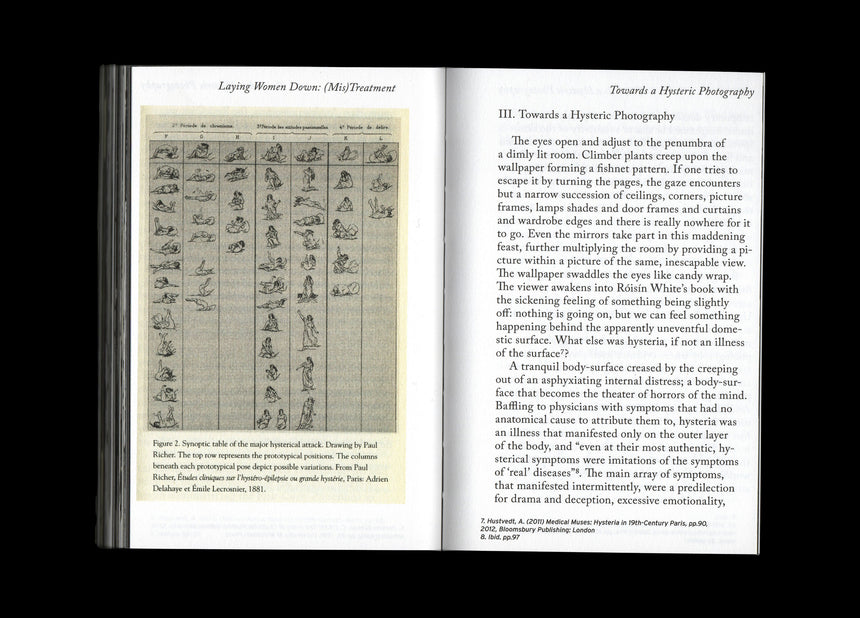 Laying Women Down: (Mis)Treatment
2e Période de clownisme.
3e Période des attitudes passionnelles
4e Période de délire.
F G H I J K L
Figure 2. Synoptic table of the major hysterical attack. Drawing by Paul
Richer. The top row represents the prototypical positions. The columns
beneath each prototypical pose depict possible variations. From Paul
Richer, Études cliniques sur l'hystéro-épilepsie ou grande hystérie, Paris: Adrien
Delahaye et Émile Lecrosnier, 1881.
Towards a Hysteric Photography
III. Towards a Hysteric Photography
The eyes open and adjust to the penumbra of
a dimly lit room. Climber plants creep upon the
wallpaper forming a fishnet pattern. If one tries to
escape it by turning the pages, the gaze encounters
but a narrow succession of ceilings, corners, picture
frames, lamps shades and door frames and curtains
and wardrobe edges and there is really nowhere for it
to go. Even the mirrors take part in this maddening
feast, further multiplying the room by providing a pi-
cture within a picture of the same, inescapable view.
The wallpaper swaddles the eyes like candy wrap.
The viewer awakens into Róisín White's book with
the sickening feeling of something being slightly
off: nothing is going on, but we can feel something
happening behind the apparently uneventful dome-
stic surface. What else was hysteria, if not an illness
of the surface⁷?
A tranquil body-surface creased by the creeping
out of an asphyxiating internal distress; a body-sur-
face that becomes the theater of horrors of the mind.
Baffling to physicians with symptoms that had no
anatomical cause to attribute them to, hysteria was
an illness that manifested only on the outer layer
of the body, and “even at their most authentic, hy-
sterical symptoms were imitations of the symptoms
of ‘real’ diseases”⁸. The main array of symptoms,
that manifested intermittently, were a predilection
for drama and deception, excessive emotionality,
7. Hustvedt, A. (2011) Medical Muses: Hysteria in 19th-Century Paris, pp.90,
2012, Bloomsbury Publishing; London
8. Ibid. pp.97